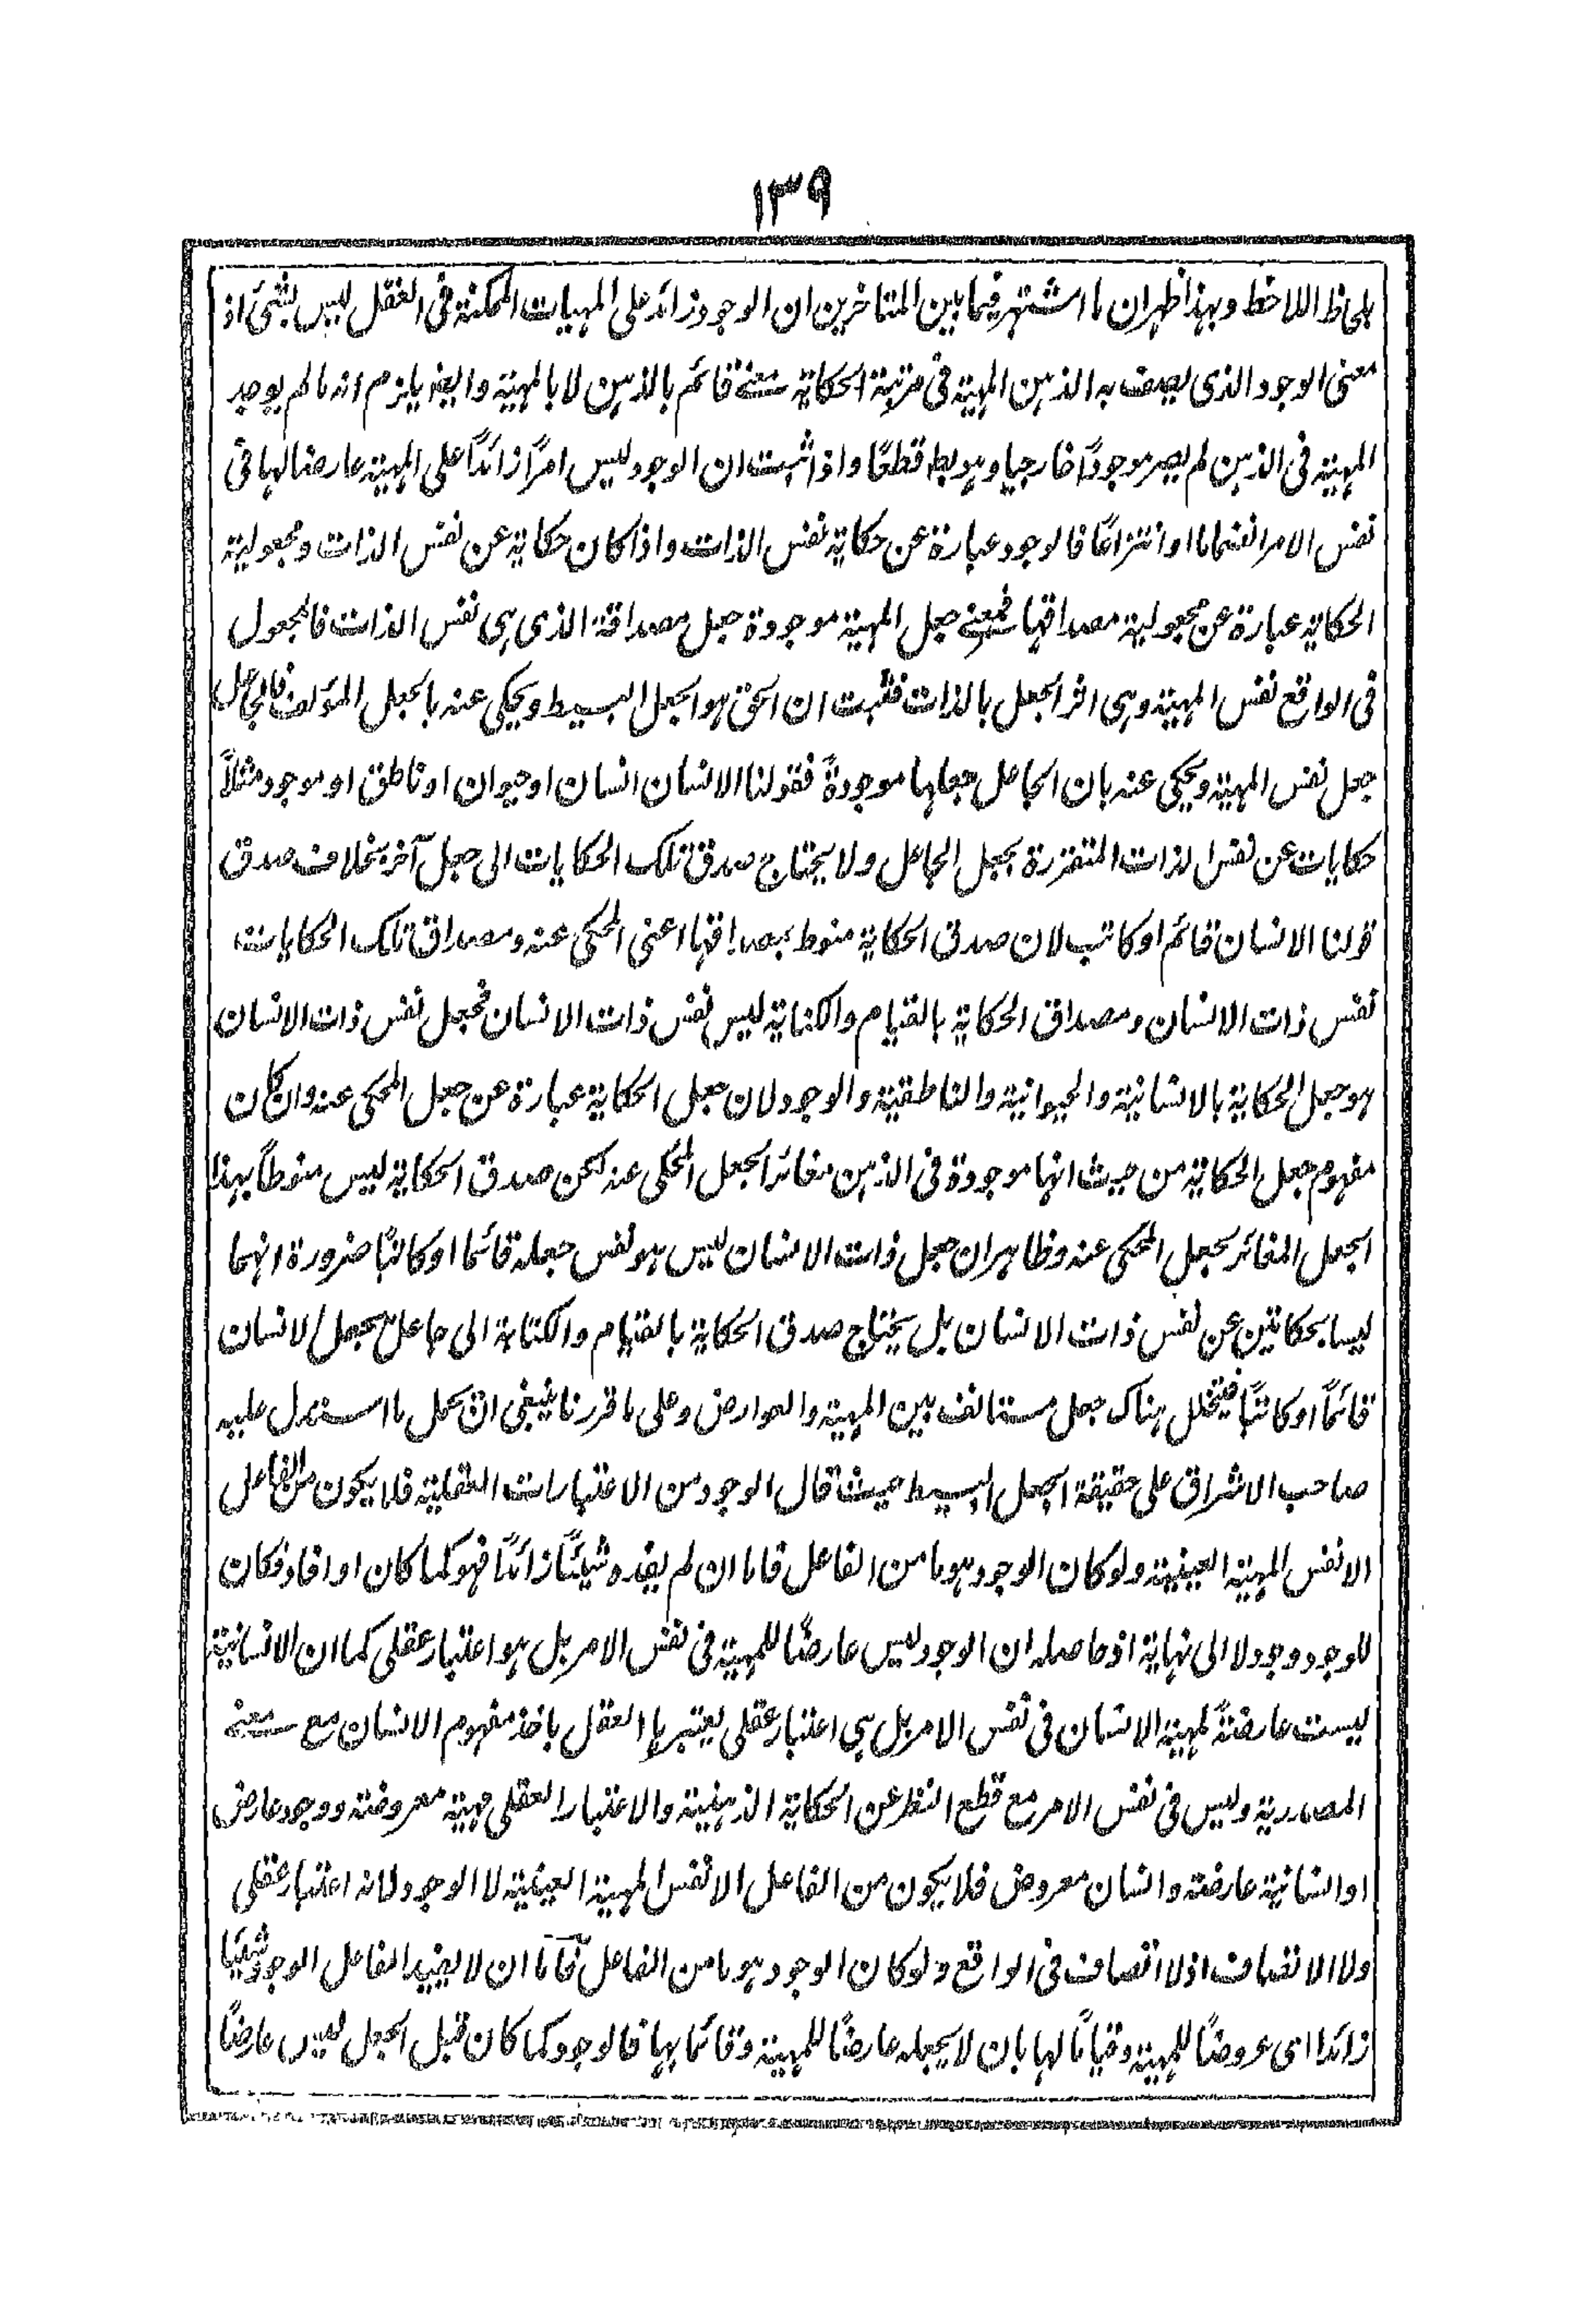 ١٣٩
بلحاظ اللاحظ وبهذا ظهر ان ما اشتهر فيما بين المتاخرين ان الوجود زائد على المهيات الممكنة فى العقل ليس بشئ اذ
معنى الوجود الذى يصف به الذهن المهية فى مرتبة الحكاية معنى قائم بالذهن لا بالمهية وايضا يلزم انه ما لم يوجد
المهية فى الذهن لم يصر موجودًا خارجيا وهو بط قطعًا واذا ثبت ان الوجود ليس امرًا زائدًا على المهية عارضا لها فى
نفس الامر انضماما او انتزاعًا فالوجود عبارة عن حكاية نفس الذات واذا كان حكاية عن نفس الذات ومجعولية
الحكاية عبارة عن مجعولية مصداقها فمعنى جعل المهية موجودة جعل مصداقة الذى هى نفس الذات فالمجعول
فى الواقع نفس المهية وهى اثر الجعل بالذات فثبت ان الحق هو الجعل البسيط ويحكى عنه بالجعل المؤلف فالجاعل
جعل نفس المهية ويحكى عنه بان الجاعل جعلها موجودةً فقولنا الانسان انسان او حيوان او ناطق او موجود مثلاً
حكايات عن نفس الذات المتقررة بجعل الجاعل ولا يحتاج صدق تلك الحكايات الى جعل آخر بخلاف صدق
قولنا الانسان قائم او كاتب لان صدق الحكاية منوط بمصداقها اعنى المحكى عنه ومصداق تلك الحكايات
نفس ذات الانسان ومصداق الحكاية بالقيام والكتابة ليس نفس ذات الانسان فجعل نفس ذات الانسان
هو جعل الحكاية بالانسانية والحيوانية والناطقية والوجود لان جعل الحكاية عبارة عن جعل المحكى عنه وان كان
مفهوم جعل الحكاية من حيث انها موجودة فى الذهن مغائرا لجعل المحكى عنه لكن صدق الحكاية ليس منوطاً بهذا
الجعل المغائر لجعل المحكى عنه وظاهر ان جعل ذات الانسان ليس هو نفس جعله قائما او كاتبًا ضرورة انهما
ليسا بحكاتين عن نفس ذات الانسان بل يحتاج صدق الحكاية بالقيام والكتابة الى جاعل يجعل الانسان
قائمًا او كاتبًا فيتخلل هناك جعل مستانف بين المهية والعوارض وعلى ما قررنا ينبغى ان يحمل ما استدل عليه
صاحب الاشراق على حقيقة الجعل البسيط حيث قال الوجود من الاعتبارات العقلية فلا يكون من الفاعل
الا نفس المهية العينية ولو كان الوجود هو ما من الفاعل فاما ان لم يفده شيئًا زائدًا فهو كما كان او افاد فكان
للوجود وجود لا الى نهاية اذ حاصله ان الوجود ليس عارضًا للمهية فى نفس الامر بل هو اعتبار عقلى كما ان الانسانية
ليست عارضةً لمهية الانسان فى نفس الامر بل هى اعتبار عقلى يعتبرها العقل باخذ مفهوم الانسان مع معنى
المصدرية وليس فى نفس الامر مع قطع النظر عن الحكاية الذهنية والاعتبار العقلى مهية معروضة ووجود عارض
او انسانية عارضة وانسان معروض فلا يكون من الفاعل الا نفس المهية العينية لا الوجود لانه اعتبار عقلى
ولا الاتصاف اذ لا اتصاف فى الواقع ولو كان الوجود هو ما من الفاعل فاما ان لا يفيد الفاعل الوجود شيئًا
زائدا اى عروضًا للمهية وقيامًا لها بان لا يجعله عارضًا للمهية وقائما بها فالوجود كما كان قبل الجعل ليس عارضًا